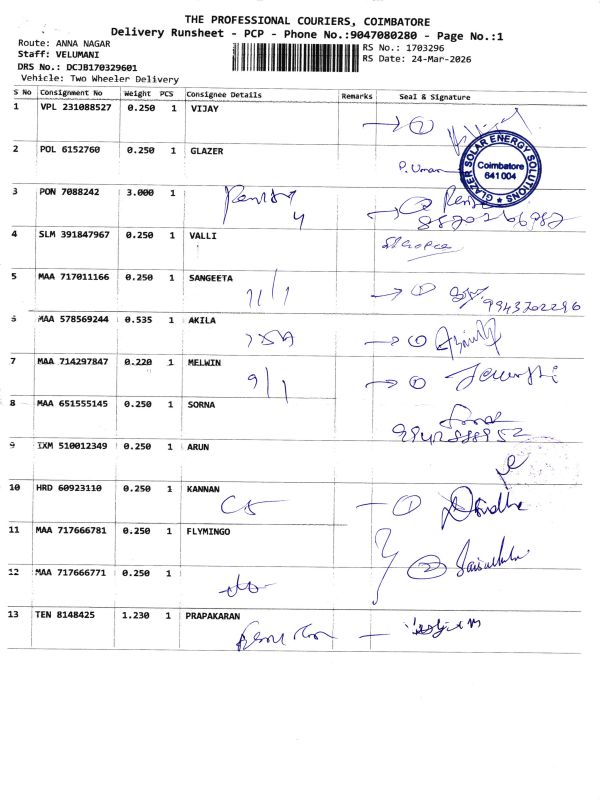 THE PROFESSIONAL COURIERS, COIMBATORE
Delivery Runsheet - PCP - Phone No.:9047080280 - Page No.:1
Route: ANNA NAGAR
RS No.: 1703296
Staff: VELUMANI
RS Date: 24-Mar-2026
DRS No.: DCJB170329601
Vehicle: Two Wheeler Delivery
S No Consignment No Weight PCS Consignee Details Remarks Seal & Signature
1 VPL 231088527 0.250 1 VIJAY
1
2 POL 6152760 0.250 1 GLAZER
P. Uman
GLAZER SOLAR ENERGY SOLUTIONS
Coimbatore
641 004
3 PON 7088242 3.000 1
4 SLM 391847967 0.250 1 VALLI
5 MAA 717011166 0.250 1 SANGEETA
11/1 1
9943702296
6 MAA 578569244 0.535 1 AKILA
1
7 MAA 714297847 0.220 1 MELWIN
9/1 1
8 MAA 651555145 0.250 1 SORNA
9942888952
9 IXM 510012349 0.250 1 ARUN
10 HRD 60923110 0.250 1 KANNAN
1
11 MAA 717666781 0.250 1 FLYMINGO
2
12 MAA 717666771 0.250 1
do
13 TEN 8148425 1.230 1 PRAPAKARAN